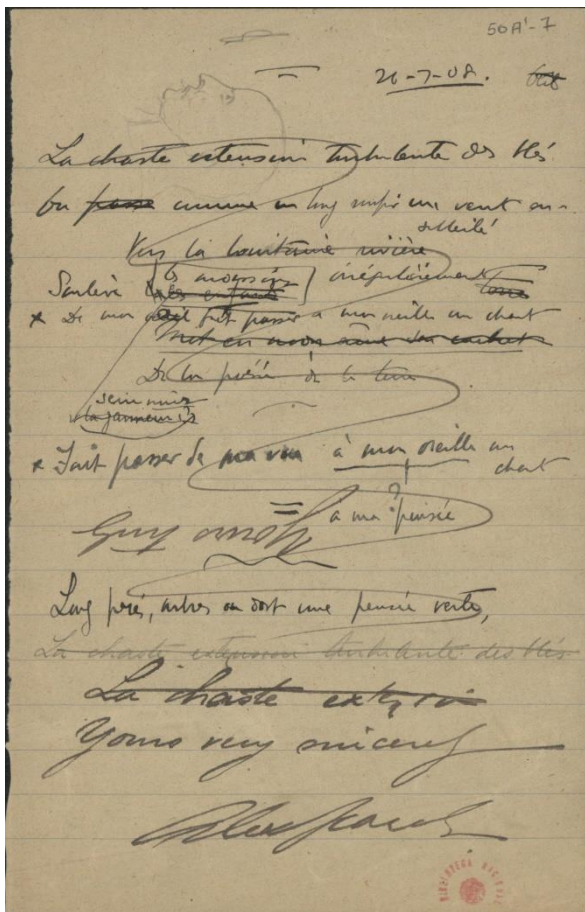 50A¹-7
20-7-08.
La chaste extension turbulente des blés
Ou passe comme un long soupir un vent en-
soleillé
Vers la lointaine rivière
Soulève les moissons irrégulièrement
les enfants
* De mon œil fait passer a mon oreille un chant
Met en mon âme
De la poésie de la terre
sein noir
* Fait passer de ma vue à mon oreille un
chant
à ma ? pensée
Guy
Long prés, arbres ou dort une pensée verte,
La chaste extension turbulente des blés
La chaste
Yours very sincerely
BIBLIOTECA NACIONAL